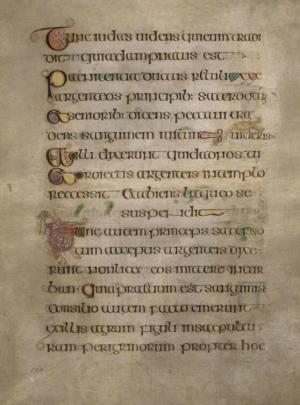 Tunc iudas uidens quieum tradi
dit quia damnatus est
Paenitentia ductus rettulit xxx
argenteos principib: sacerdotū
Senioribː dicens peccaui tra
dens sanguinem iustum
Illi dixerunt quid ad nos tu
Proiectis argenteis in templo
recessit Et abiens laqueo se
suspendit
Tunc autem princeps sacerdo
tum acceptis argenteis dixe
runt non licet eos mittere incar
ban Quia praetium est sanguinis
Consilio autem facto emerunt
ex illis agrum figuli in sepultu
ram perigrinorum propter hoc